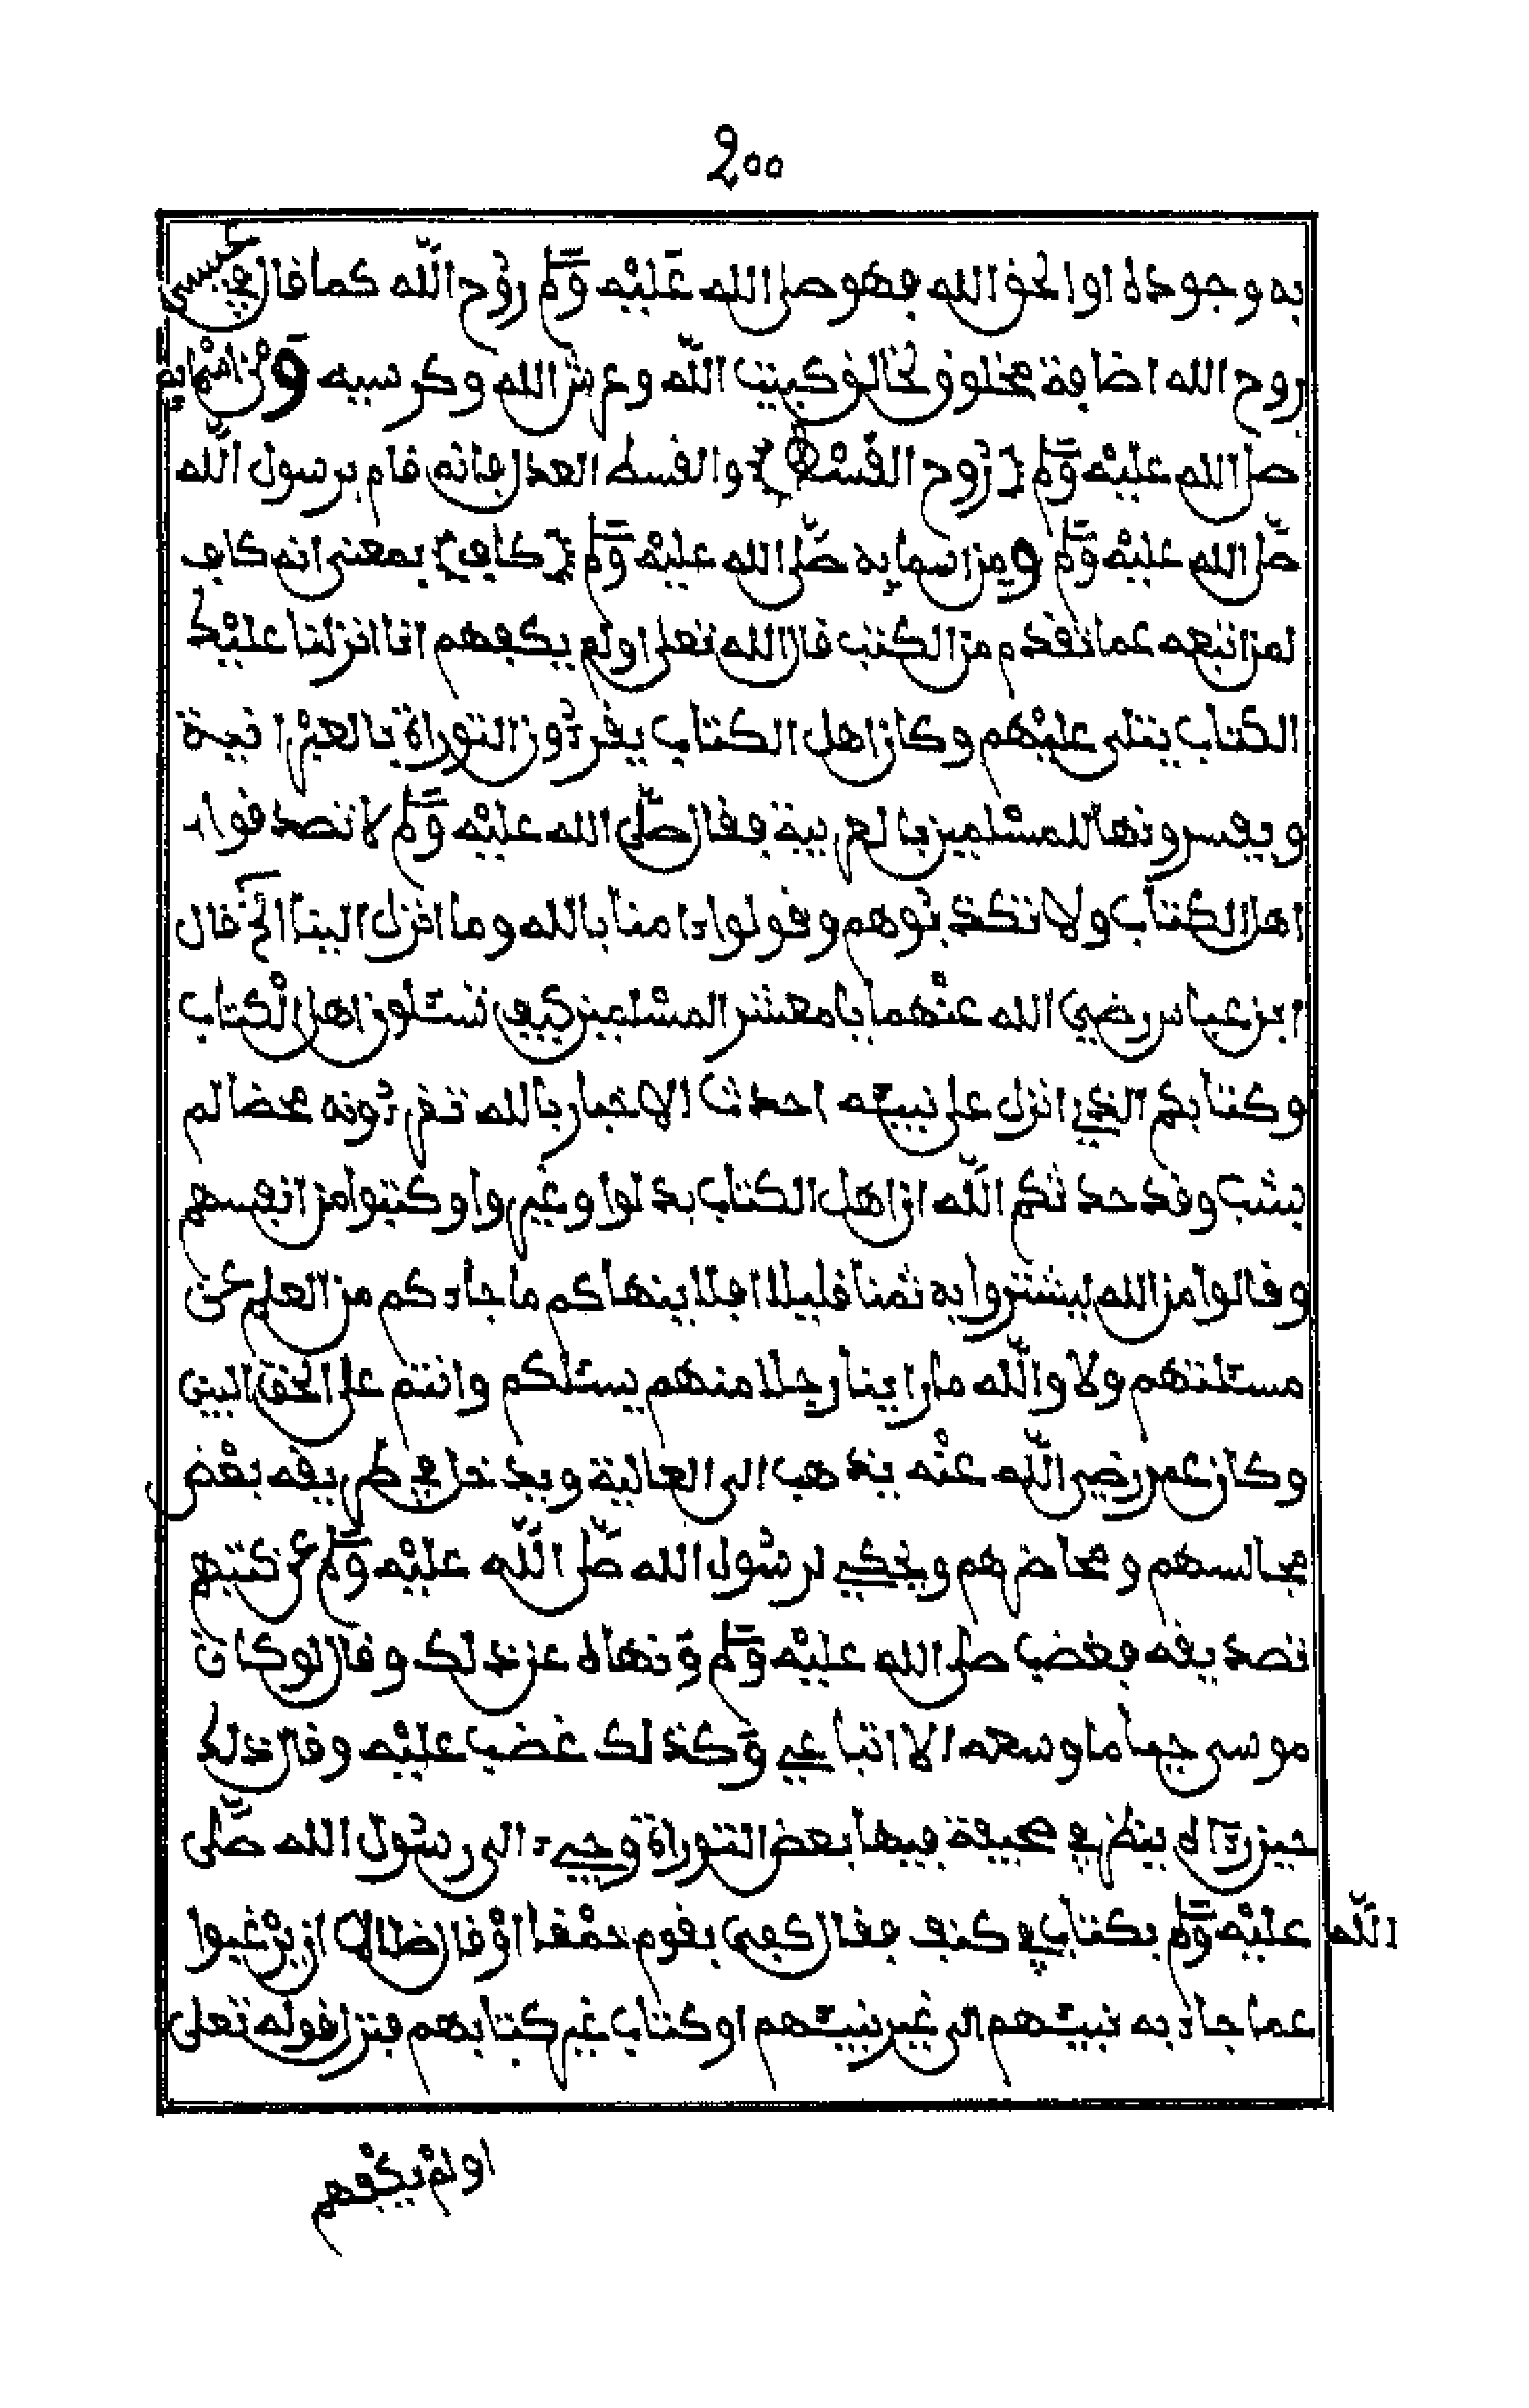 ٢٠٠
به وجوده او الحق الله فهو صلى الله عليه وسلم روح الله كما قال في عيسى
روح الله اضافة مخلوق لخالق كبيت الله وعرش الله وكرسيه ومن اسمايه
صلى الله عليه وسلم {روح القسط} والقسط العدل فانه قام برسول الله
صلى الله عليه وسلم ومن اسمايه صلى الله عليه وسلم {كاف} بمعنى انه كاف
لمن اتبعه عما تقدم من الكتب قال الله تعلى اولم يكفهم انا انزلنا عليك
الكتاب يتلى عليهم وكان اهل الكتاب يقرءون التوراة بالعبرانية
ويفسرونها للمسلمين بالعربية فقال صلى الله عليه وسلم لا تصدقوا
اهل الكتاب ولا تكذبوهم وقولوا ءامنا بالله وما انزل الينا الخ قال
ابن عباس رضي الله عنهما يا معشر المسلمين كيف تسئلون اهل الكتاب
وكتابكم الذي انزل على نبيئه احدث الاخبار بالله تقرءونه محضا لم
يشب وقد حدثكم الله ان اهل الكتاب بدلوا وغيروا وكتبوا من انفسهم
وقالوا من الله ليشتروا به ثمنا قليلا افلا ينهاكم ما جاءكم من العلم عن
مسئلتهم ولا والله ما راينا رجلا منهم يسئلكم وانتم على الحق البين
وكان عمر رضي الله عنه يذهب الى العالية ويدخل في طريقه بعض
مجالسهم ومحاضرهم ويحكي لرسول الله صلى الله عليه وسلم عن كتبهم
تصديقه فغضب صلى الله عليه وسلم ونهاه عن ذلك وقال لو كان
موسى حيا ما وسعه الا اتباعي وكذلك غضب عليه وقال ذلك
حين رءاه ينظر في صحيفة فيها بعض التوراة وجيء الى رسول الله صلى
الله عليه وسلم بكتاب في كتف فقال كفى بقوم حمقا او قال ضلالا ان يرغبوا
عما جاء به نبيئهم الى غير نبيئهم او كتاب غير كتابهم فنزل قوله تعلى
اولم يكفهم